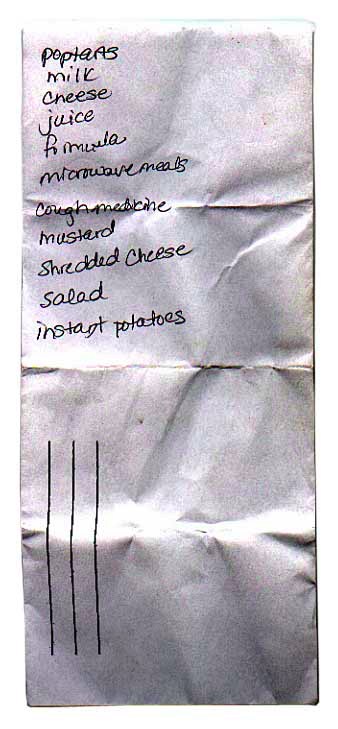 poptarts
milk
cheese
juice
formula
microwave meals
cough medicine
mustard
shredded cheese
salad
instant potatoes